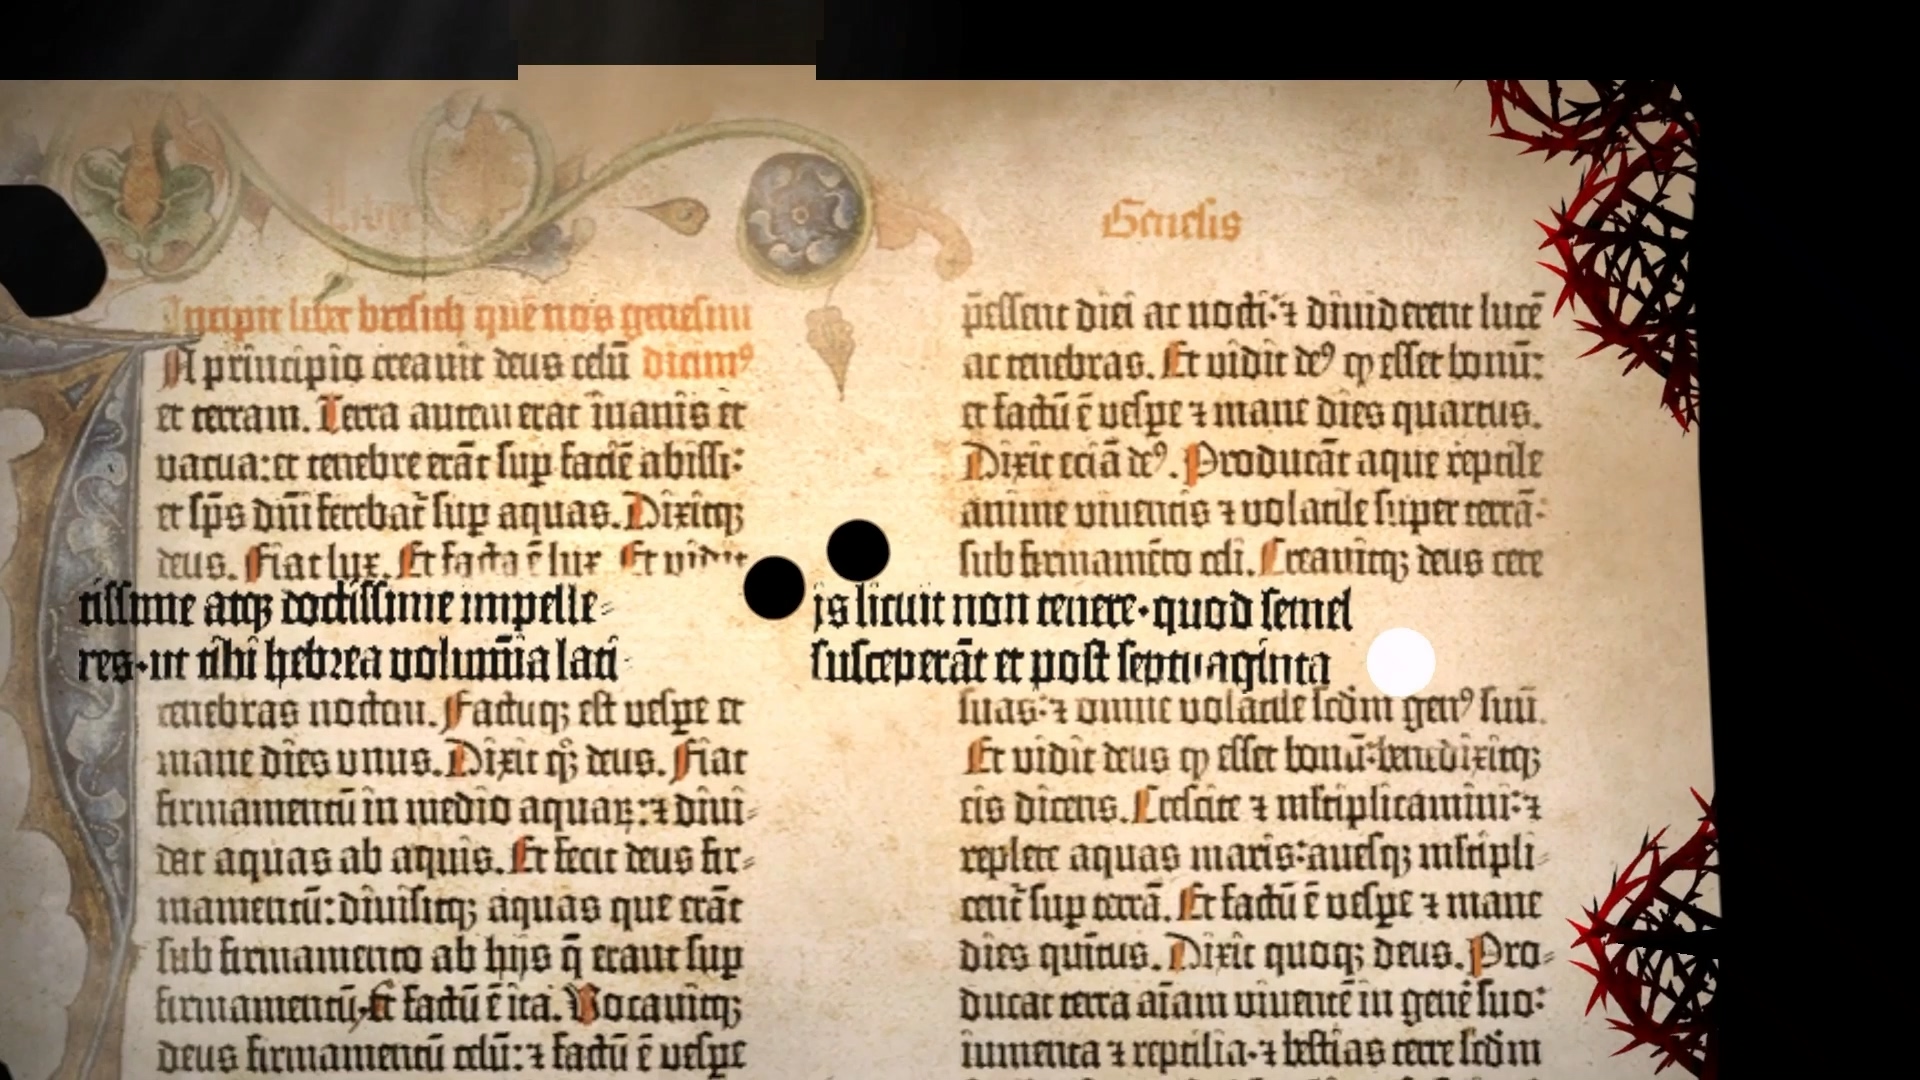 Genesis
Incipit liber bresich quē nos genesim
A principio creauit deus celū dicim⁹
et terram. Terra autem erat inanis et
vacua: et tenebre erāt sup faciē abissi:
et sp̄s dn̄i ferebat̄ sup aquas. Dixitq;
deus. Fiat lux. Et facta ē lux Et vidit
tissime atq; coctissime impelle-
res·ut tibi hebrea volumīa lati-
tenebras noctem. Factūq; est vespe et
mane dies unus. Dixit q̄; deus. Fiat
firmamentū in medio aquaꝝ: ⁊ diui-
dat aquas ab aquis. Et fecit deus fir-
mamentū: diuisitq; aquas que erāt
sub firmamento ab hijs q̄ erant sup
firmamentū. Et factū ē ita. Vocauitq;
deus firmamentū celū: ⁊ factū ē vespe
p̄essent diei ac nocti: ⁊ diuiderent lucē
ac tenebras. Et vidit de⁹ ꝙ esset bonū:
et factū ē vespe ⁊ mane dies quartus.
Dixit eciā de⁹. Producāt aque reptile
anime viuentis ⁊ volatile super terrā:
sub firmamēto celi. Creauitq; deus cete
js licuit non tenere·quod semel
susceperāt et post septuaginta
suas: ⁊ omne volatile scdm gen⁹ suū.
Et vidit deus ꝙ esset bonū: benedixitq;
eis dicens. Crescite ⁊ mĺtiplicamini: ⁊
replete aquas maris: auesq; mĺtipli-
cent̄ sup terrā. Et factū ē vespe ⁊ mane
dies quītus. Dixit quoq; deus. Pro-
ducat terra aīam viuentē in genē suo:
iumenta ⁊ reptilia· ⁊ bestias terre scdm